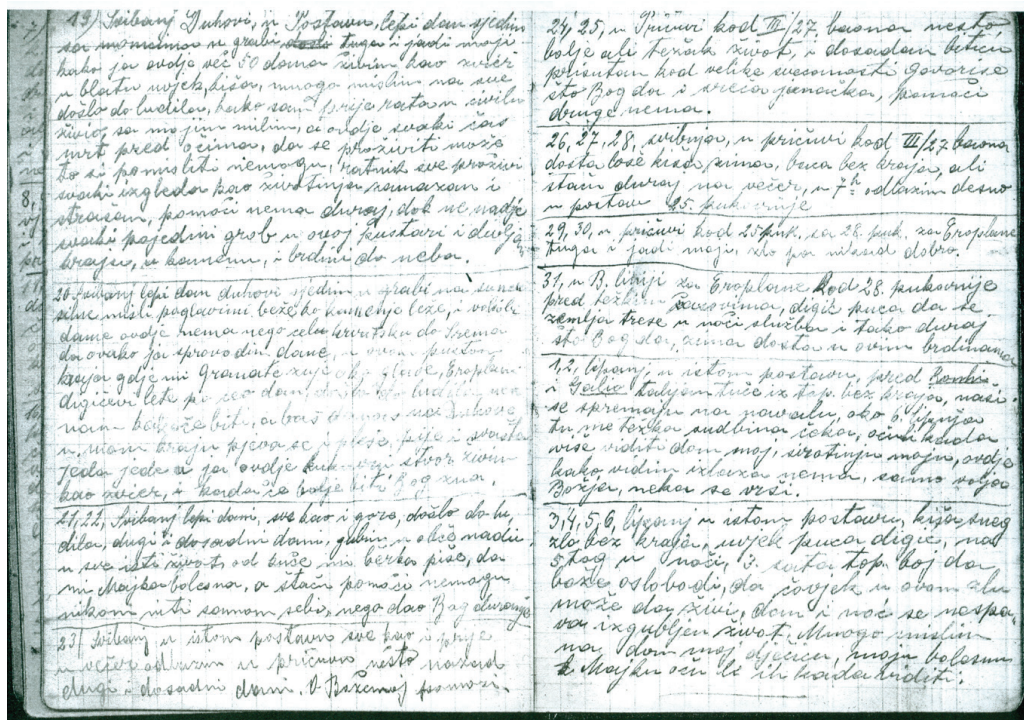 19) Svibanj Duhovi, u Postavu, lepi dan sjedim
sa momcima u grabi tuga i jadi moji
kako ja ovdje več 50 dana živim kao zvēr
u blatu uvjek, kiša, mnogo mislim na sve
došlo do ludila, kako sam prije rata u civilu
živio, sa mojim milim, a ovdje svaki čas
smrt pred očima, da se proživiti može
to si pomisliti nemogu, ratnik sve proživi
svaki izgleda kao životinja zamazan i
strašan, pomoći nema duraj, dok ne nadje
svaki pojedini grob u ovoj pustari i divlja
kraju, u kamenu, i brdini do neba.
20. Svibanj lepi dan duhovi sjedim u grabi na suncu
misli poglavini kamenje leže, i
dame ovdje nema nego celu hrvatsku do Srema
da ovako ja sprovodim dane, u ovom pustom
kraju gdje mi Granate zuje oko glave, Eroplani
digićevi lete po ceo dan, do ludila, ne
nam biti, a baš danas na Duhove
u mom kraju pjeva se i pleše, pije i svašta
jeda jede a ja ovdje stvor živim
kao zvēr, i kada če bolje biti Bog zna.
21, 22, Svibanj lepi dani, sve kao i gore, došlo do lu
dila, dugi i dosadni dani, gubim u obče nadu
u sve isti život, od kuče mi piše, da
mi Majka bolesna, a staću pomoći nemogu
nikom niti samom sebi, nego dao Bog duranje
23/ Svibanj, u istom postavu sve kao i prije
u večer odlazim u pričuvu nēsto nazad
dugi i dosadni dani. O Bože moj pomozi.
24, 25, u Pričuvi kod III/27. baona nešto
bolje ali težak život, i dosadan
prisutan kod velike svečanosti Govori se
što Bog da i sreća junačka, pomoći
druge nema.
26, 27, 28, svibnja, u pričuvi kod III/27. baona
dosta loše kiša, zima, buca bez kraja, ali
staću duraj na večer, u 7h odlazim desno
u postav 25. pukovnije
29, 30, u pričuvi kod 25 puk. sa 28. puk. za Eroplane
tuga i jadi moji, zlo pa nikad dobro.
31, u B. liniji za Eroplane kod 28. pukovnije
pred težkim digić puca da se
zemlja trese u noći služba i tako duraj
što Bog da, zima dosta u ovim brdinama
1, 2, lipanj u istom postavu, pred
i talijan tuče iz top. bez kraja, naši
se spremaju na navalu, ako 6. lipnja
tu me težka sudbina čeka, oču li kada
više viditi dom moj, sirotinju moju, ovdje
kako vidim izlaza nema, samo volja
Božja, neka se vrši.
3, 4, 5, 6, lipanj u istom postavu, kiša sneg
zlo bez kraja, uvjek puca digić, na
5 tog u noći, 3. sata top. boj da
bože oslobodi, da čovjek u ovom zlu
može da živi, dan i noć se nespa-
va izgubljen život, Mnogo mislim
na dom moj dječicu, moju bolesnu
Majku oču li ih kada viditi.